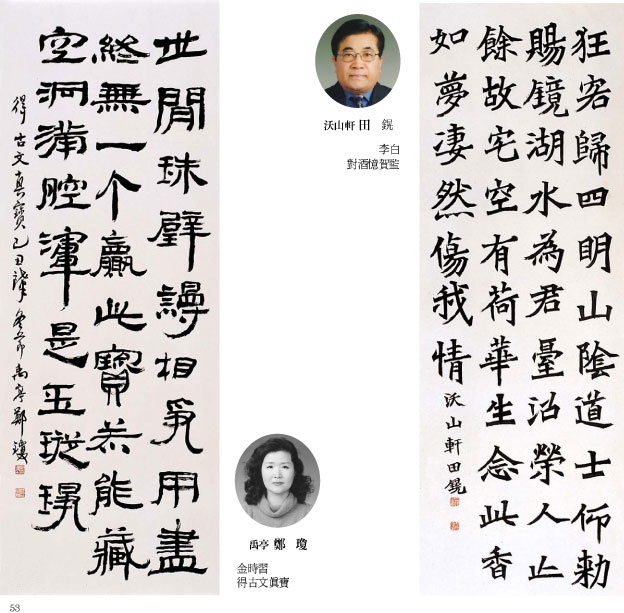 狂客歸四明山陰道士仰勅
賜鏡湖水為君臺沼榮人亡
餘故宅空有荷華生念此杳
如夢凄然傷我情
沃山軒田鎤
沃山軒 田 鎤
李白
對酒憶賀監
世間珠璧謾相爭用盡
終無一个贏此寶若能藏
空洞滿腔渾是玉瑽琤
得古文真寶 己丑 冬節 禹亭鄭瓊
禹亭 鄭 瓊
金時習
得古文眞寶
53